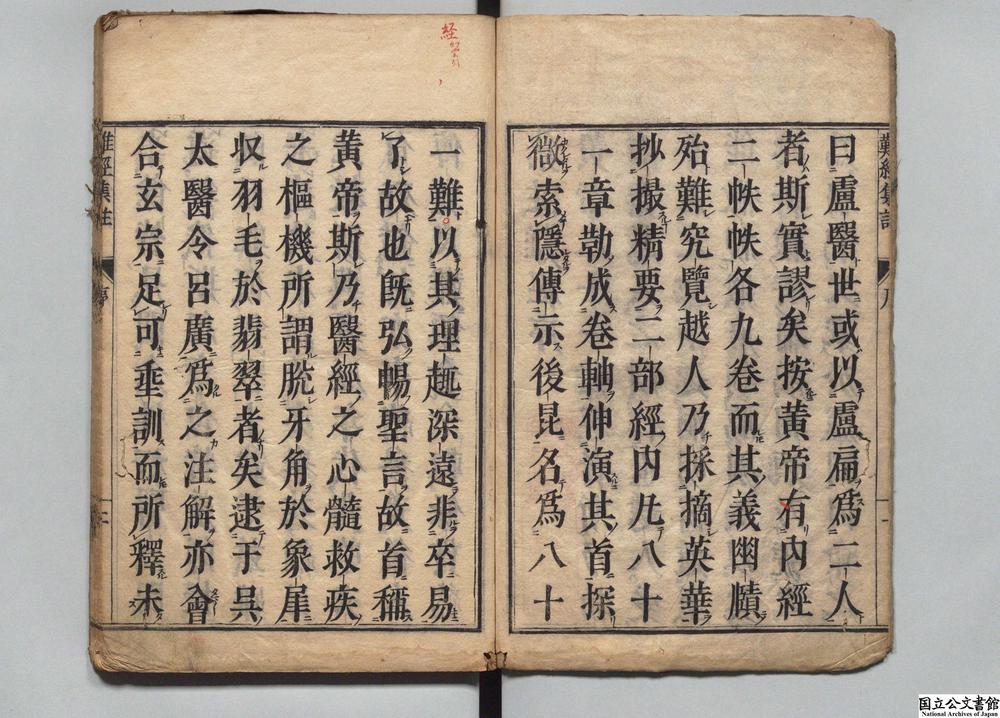 曰盧醫世或以盧扁爲二人
者斯實謬矣按黄帝有内經
二帙帙各九卷而其義幽賾
殆難究覽越人乃採摘英華
抄撮精要二部經内凡八十
一章勒成卷軸伸演其首探
微索隱傳示後昆名爲八十
一難以其理趣深遠非卒易
了故也既弘暢聖言故首稱
黄帝斯乃醫經之心髓救疾
之樞機所謂脱牙角於象犀
収羽毛於翡翠者矣逮于呉
太醫令呂廣爲之注解亦會
合玄宗足可垂訓而所釋未
難經集註
序
国立公文書館
National Archives of Japan